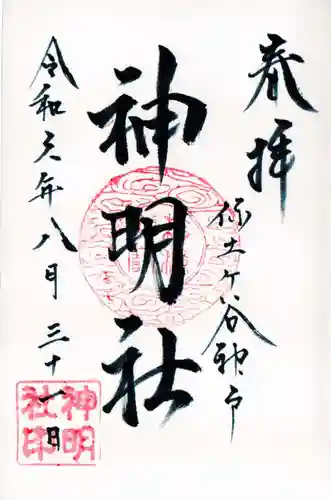 奉拝
保土ケ谷神戸
神明社
令和元年八月三十一日
神明
社印